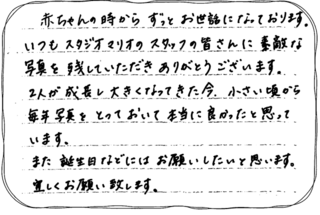 赤ちゃんの時から ずっと お世話になっております。
いつも スタジオマリオの スタッフの皆さんに 素敵な
写真を 残していただき ありがとうございます。
2人が 成長し 大きくなってきた今、小さい頃から
毎年写真を とっておいて 本当に良かったと思って
います。
また 誕生日などには お願いしたいと思います。
宜しくお願い致します。